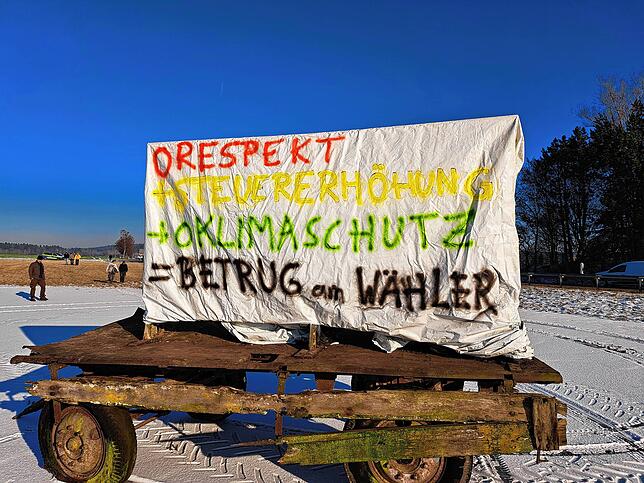 0RESPEKT
+STEUERERHÖHUNG
+0KLIMASCHUTZ
=BETRUG am WÄHLER